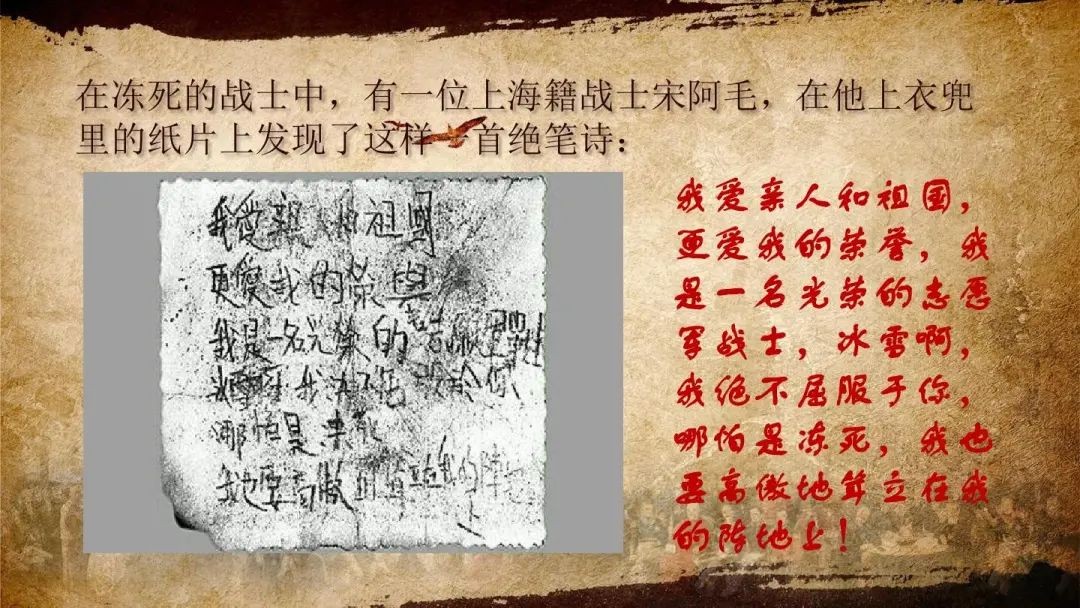 在冻死的战士中，有一位上海籍战士宋阿毛，在他上衣兜
里的纸片上发现了这样一首绝笔诗：
我愛親人和祖國
更愛我的榮譽
我是一名光榮的志願軍
我 於你
哪怕是凍死
我也要高傲 我的陣地
我爱亲人和祖国，
更爱我的荣誉，我
是一名光荣的志愿
军战士，冰雪啊，
我绝不屈服于你，
哪怕是冻死，我也
要高傲地耸立在我
的阵地上！